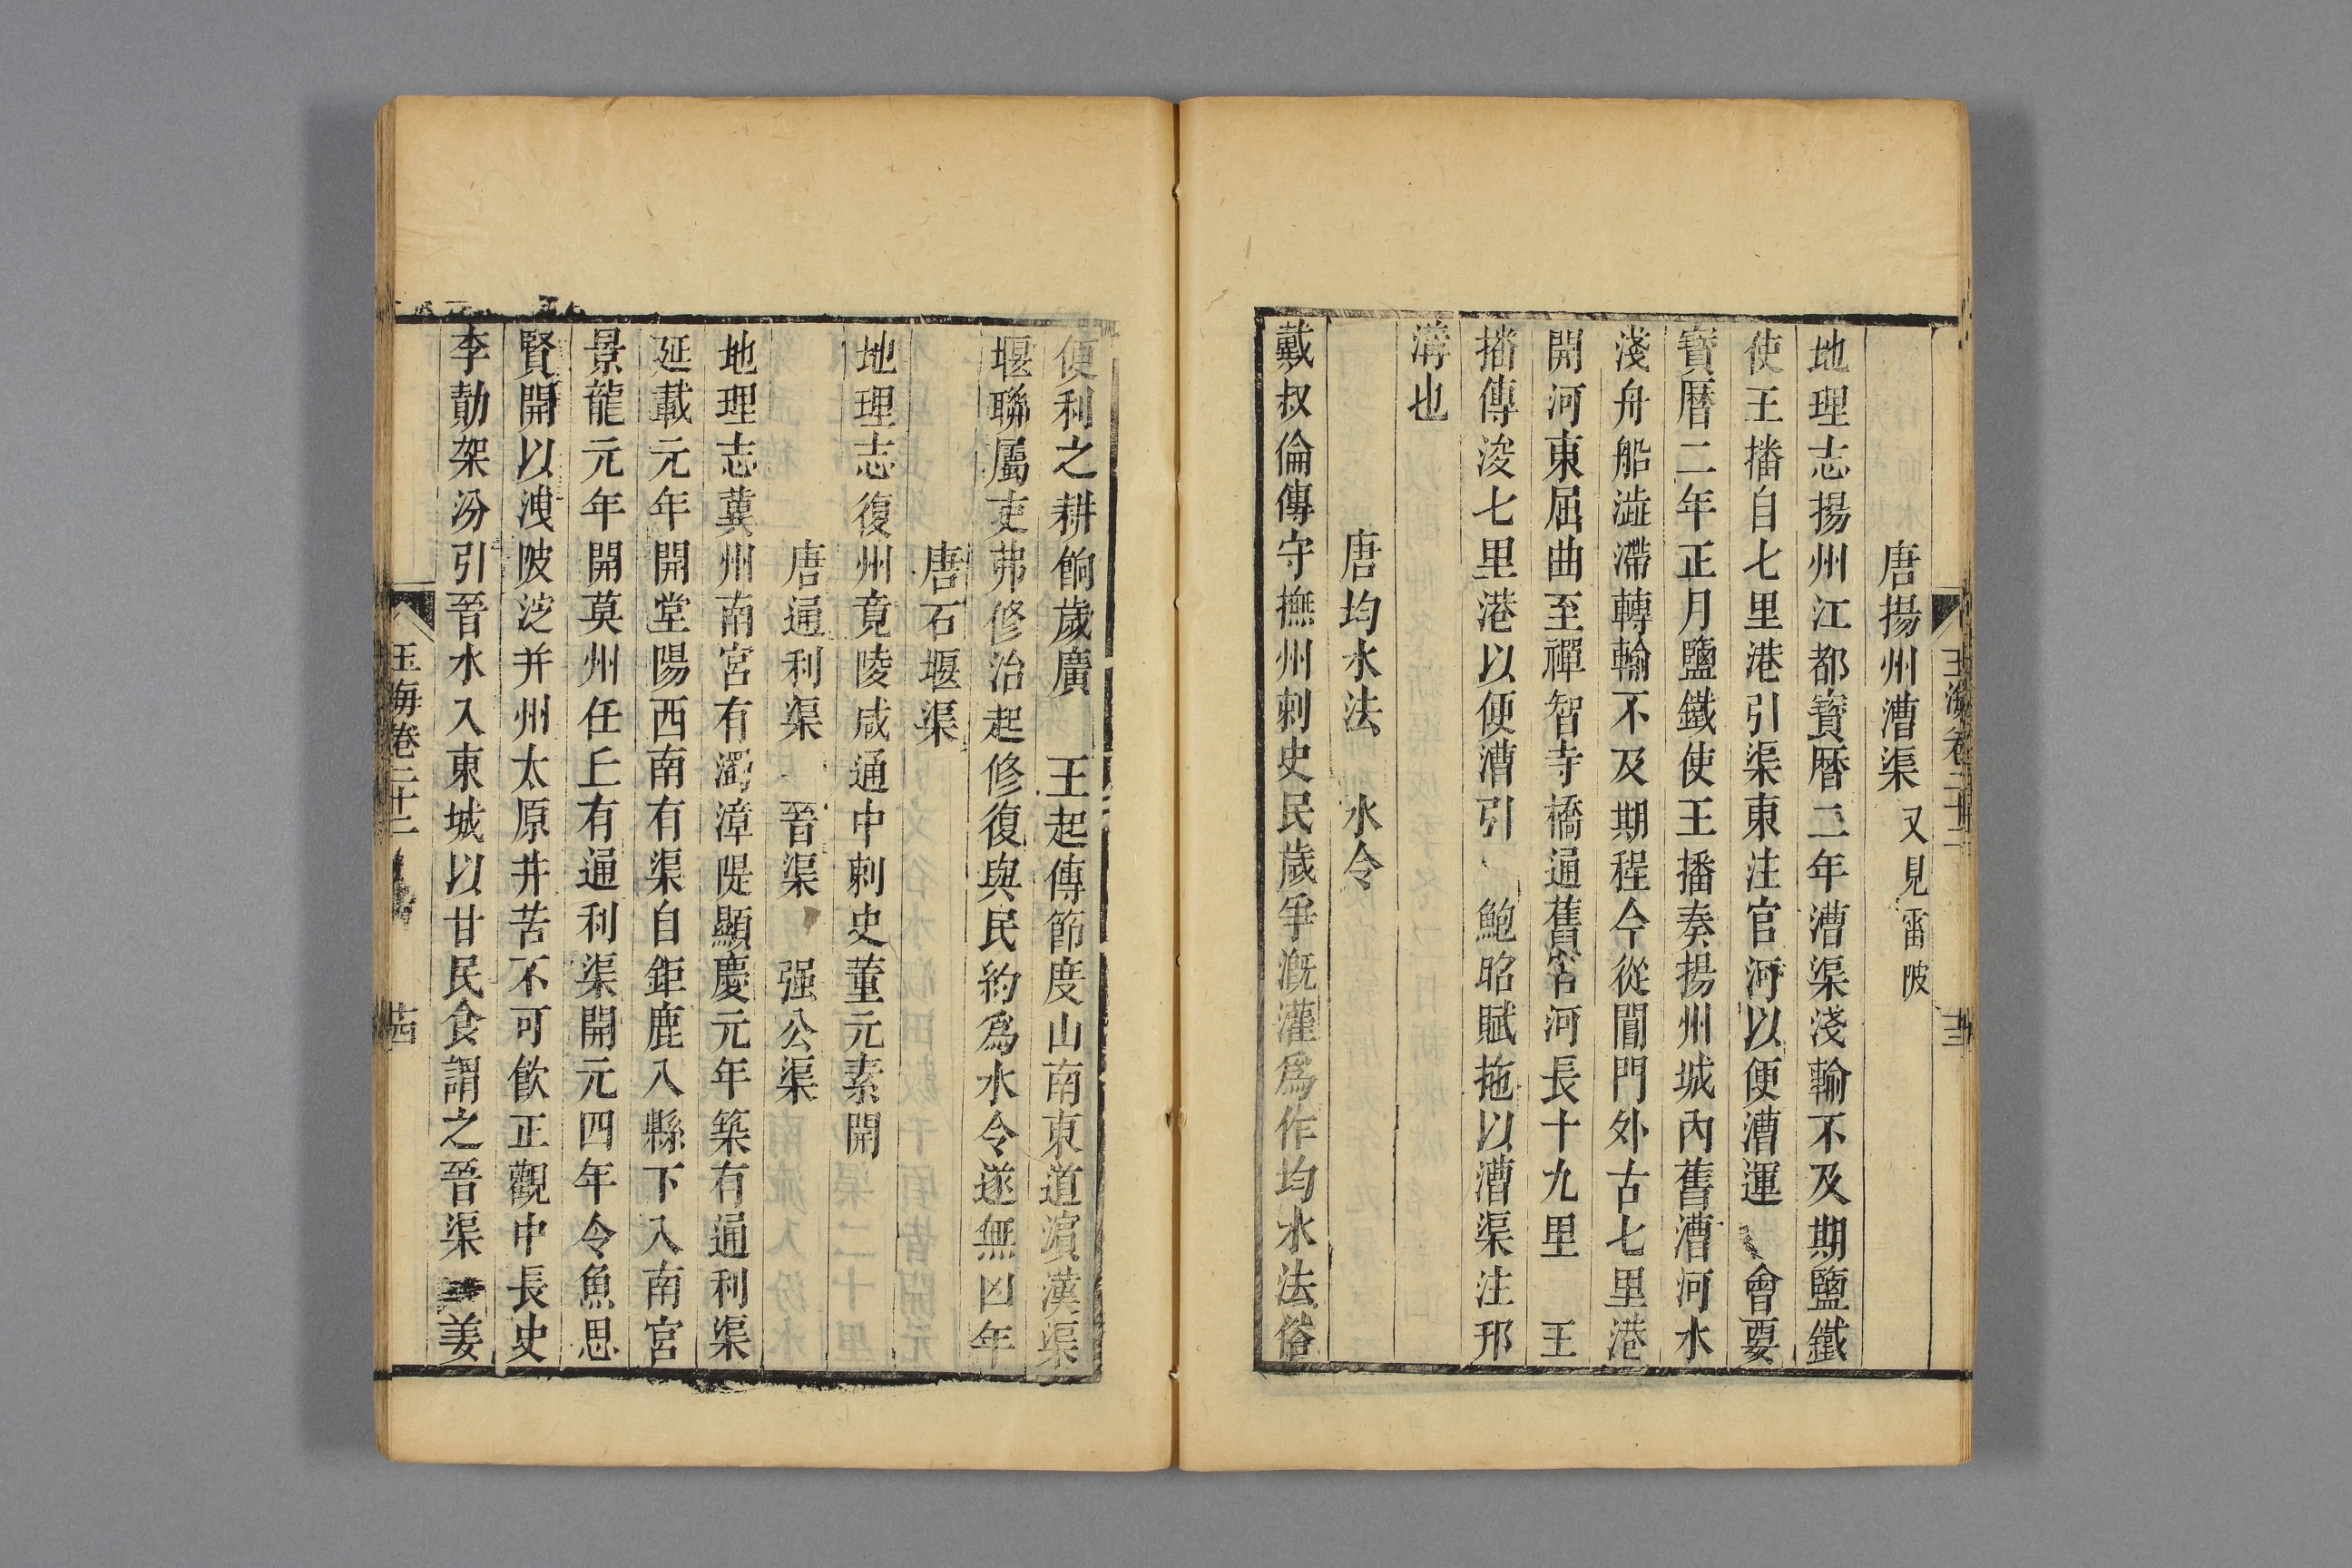 玉海卷二十二
唐揚州漕渠 又見雷陂
地理志揚州江都寶曆二年漕渠淺輸不及期鹽鐵
使王播自七里港引渠東注官河以便漕運 會要
寶曆二年正月鹽鐵使王播奏揚州城內舊漕河水
淺舟船澁滯轉輸不及期程今從閶門外古七里港
開河東屈曲至禪智寺橋通舊官河長十九里 王
播傳浚七里港以便漕引 鮑昭賦拖以漕渠注邗
溝也
唐均水法 水令
戴叔倫傳守撫州刺史民歲爭漑灌爲作均水法俗
便利之耕餉歲廣 王起傳節度山南東道濵漢渠
堰聯屬吏弗修治起修復與民約爲水令遂無凶年
唐石堰渠
地理志復州竟陵咸通中刺史董元素開
唐通利渠 晉渠 强公渠
地理志冀州南宮有濁漳隄顯慶元年築有通利渠
延載元年開堂陽西南有渠自鉅鹿入縣下入南宮
景龍元年開莫州任丘有通利渠開元四年令魚思
賢開以洩陂淀并州太原井苦不可飮正觀中長史
李勣架汾引晉水入東城以甘民食謂之晉渠 姜
玉海卷二十二 十四